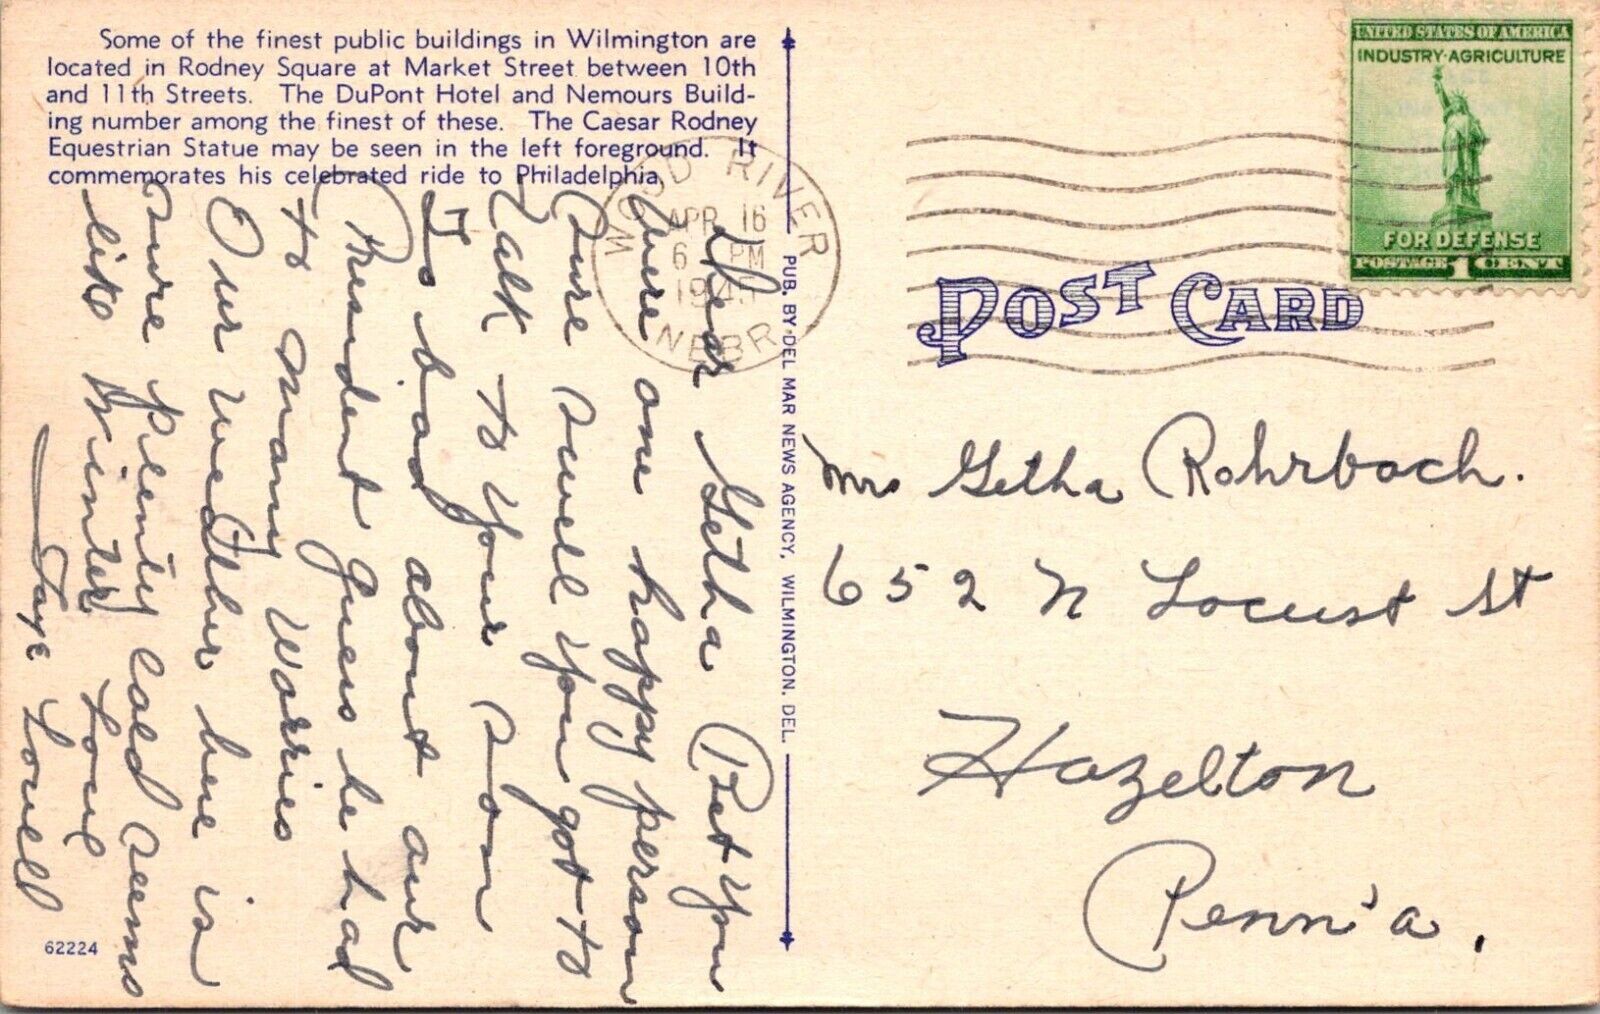 Some of the finest public buildings in Wilmington are
located in Rodney Square at Market Street between 10th
and 11th Streets. The DuPont Hotel and Nemours Build-
ing number among the finest of these. The Caesar Rodney
Equestrian Statue may be seen in the left foreground. It
commemorates his celebrated ride to Philadelphia.
Dear Getha Bet you
were one happy person
Sure swell you got to
talk to your son
To bad about our
President Guess he had
to many worries
Our weather here is
sure plenty cold seems
like Winter
Love
Faye Lovell
62224
PUB. BY DEL MAR NEWS AGENCY, WILMINGTON, DEL.
WOOD RIVER
APR 16
6 PM
1945
NEBR
UNITED STATES OF AMERICA
INDUSTRY·AGRICULTURE
FOR DEFENSE
POSTAGE 1 CENT
POST CARD
Mrs Getha Rohrbach.
652 N Locust St
Hazelton
Penn'a.